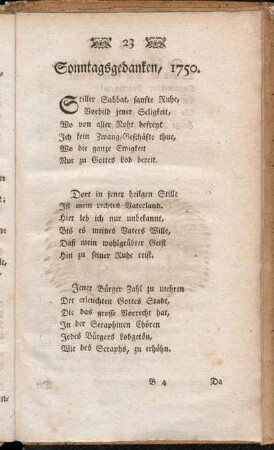 23
Sonntagsgedanken, 1750.
Stiller Sabbat, sanfte Ruhe,
Vorbild jener Seligkeit,
Wo von aller Noht befreyt
Ich kein Zwang-Geschäfte thue,
Wo die ganze Ewigkeit
Nur zu Gottes Lob bereit.
Dort in jener heilgen Stille
Ist mein rechtes Vaterland.
Hier leb ich nur unbekannt,
Bis es meines Vaters Wille,
Daß mein wohlgeübter Geist
Hin zu seiner Ruhe reist.
Jener Bürger Zahl zu mehren
Der erleuchten Gottes Stadt,
Die das grosse Vorrecht hat,
In der Seraphinen Chören
Jedes Bürgers Lobgetön,
Wie des Seraphs, zu erhöhn.
B 4 Da